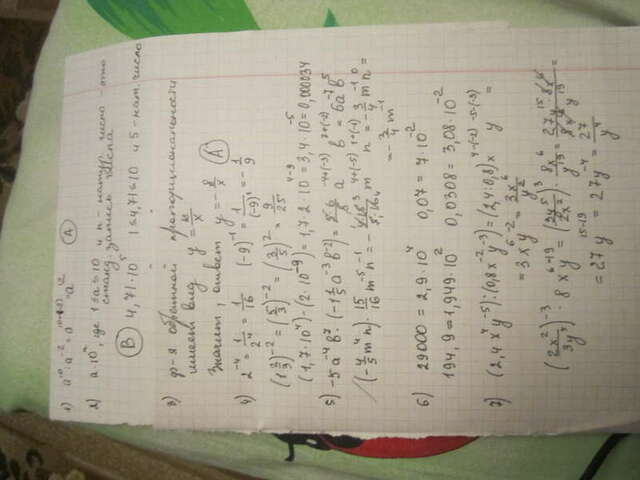 1) a¹⁰ : a⁻² = a¹⁰⁻⁽⁻²⁾ = a¹² (A)
2) a·10ⁿ, где 1≤a≤10 и n - натур. число - это
станд. запись числа
(B) 4,71·10⁵ 1≤4,71≤10 и 5 - нат. число
3) ф-я обратной пропорциональности
имеет вид y = к/x
Значит, ответ y = -8/x (A)
4) 2⁻⁴ = 1/2⁴ = 1/16 (-9)⁻¹ = 1/(-9)¹ = -1/9
(1 2/3)⁻² = (5/3)⁻² = (3/5)² = 9/25
(1,7·10⁴)-(2·10⁻⁹) = 1,7·2·10⁴⁻⁹ = 3,4·10⁻⁵ = 0,000034
5) -5a⁻⁴b⁷·(-1 1/5 a⁻³b⁻²) = 5·6/5 a⁻⁴⁺⁽⁻³⁾ b⁷⁺⁽⁻²⁾ = 6a⁻⁷b⁵
(-4/5 m⁴n)·15/16 m⁻⁵n⁻¹ = -4·15³/5·16₄ m⁴⁺⁽⁻⁵⁾ n¹⁺⁽⁻¹⁾ = -3/4 m⁻¹n⁰ =
= -3/4 m⁻¹
6) 29000 = 2,9·10⁴ 0,07 = 7·10⁻²
194,9 = 1,949·10² 0,0308 = 3,08·10⁻²
7) (2,4x⁴y⁻⁵):(0,8x⁻²y⁻³) = (2,4:0,8)x⁴⁻⁽⁻²⁾ y⁻⁵⁻⁽⁻³⁾ =
= 3x⁶y⁻² = 3x⁶/y²
(2x²/3y⁵)⁻³·8x⁶y⁻¹⁹ = (3y⁵/2x²)³·8x⁶/y¹⁹ = 27y¹⁵·8x⁶/8x⁶y¹⁹ =
= 27y¹⁵⁻¹⁹ = 27y⁻⁴ = 27/y⁴